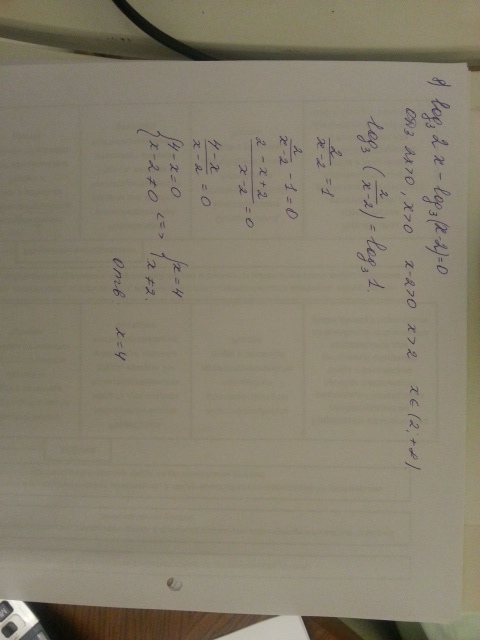 8) log₃ 2x - log₃(x-2)=0
ОДЗ 2x>0, x>0 x-2>0 x>2 x∈(2;+∞)
log₃ (2/(x-2)) = log₃ 1.
2/(x-2) = 1
2/(x-2) - 1 = 0
(2-x+2)/(x-2) = 0
(4-x)/(x-2) = 0
{4-x=0 <=> {x=4
{x-2≠0 {x≠2.
Отв: x=4